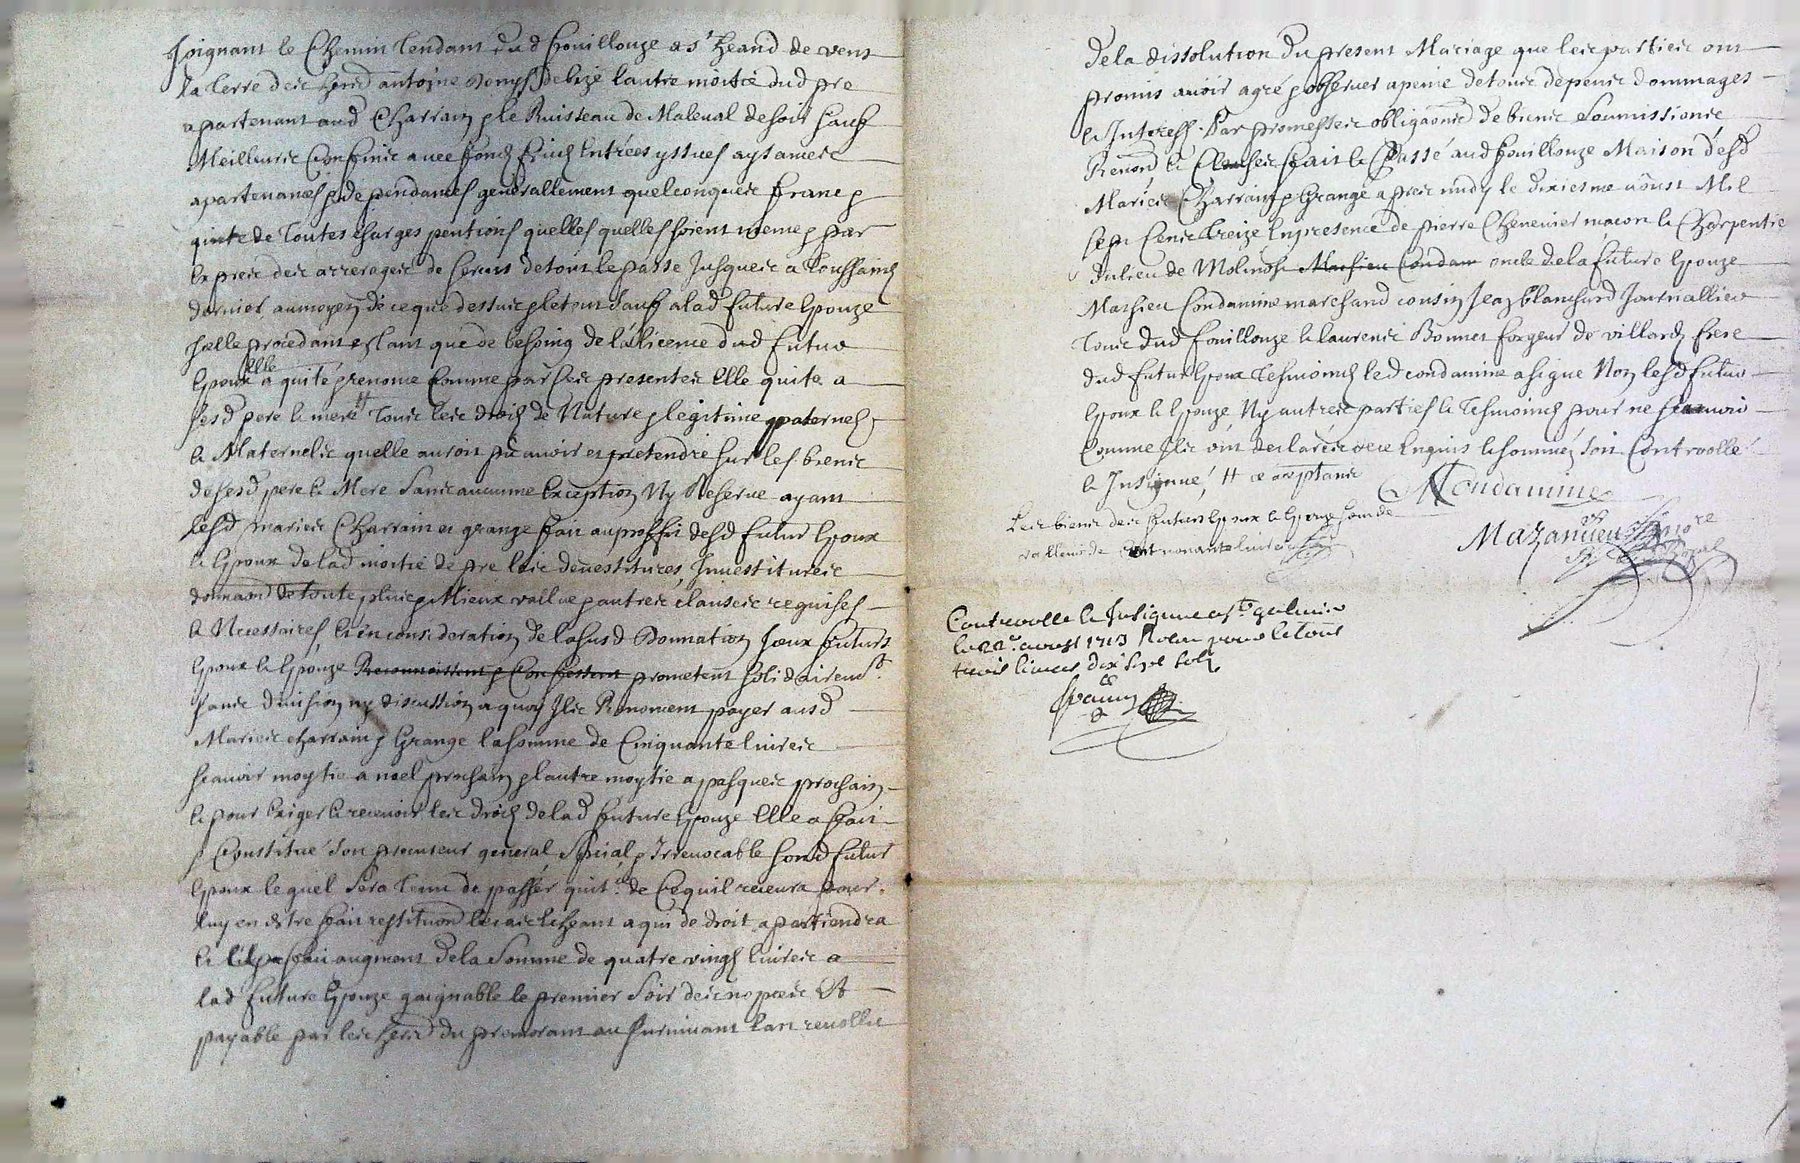 Joignant le Chemin tendant dud fouillouze a st heand de vent
la terre des hers antoine Denys Debize lautre moitié dud pre
apartenant aud Charrain & le Ruisseau de Maleval de soir sauf
Meilleurs Confins avec fonds fruicts Entrées yssues aysances
apartenances & dependances generallement quelconques franc &
quitte de toutes charges pentions quelles quelles soient meme & par
Expres des arrerages de servis de tout le passe Jusques a toussaincts
dernier au moyen de ce que dessus & le tout sauf a lad future Epouze
procedant Estant que de besoing de la licence dud futur
Epoux elle a quité & renoncé Comme par ses presentes Elle quite a
sesd pere & mere # tous les droicts de Nature & legitime paternels
& Maternels quelle auroit pû avoir et pretendre sur les biens
de sesd pere & Mere sans aucune Exception Ny Reserve ayant
lesd maries Charrain et grange fait au proffit desd futur Epoux
& Epouze de lad moitié de pre les devestitures Investitures
donnant de toute plus & Mieux vallue & autres clauses requises
& Necessaires Et en consideration de la susd Donnation Iceux futurs
Epoux & Epouze Reconnoissent & Confessent prometent solidairemt
sans division ny discussion a quoy Ils Renoncent payer ausd
Maries charrain & Grange la somme de Cinquante livres
scavoir moytie a noel prochain & lautre moytie a pasques prochain
& pour Exiger & recevoir les droicts de lad future Epouze Elle a fait
& Constitué son procureur general special & Irrevocable sond futur
Epoux lequel sera tenu de passer quitce de Ce quil recevra pour
luy en Estre fait restitution le cas Echeant a qui de droit apartiendra
Et fait augment de la somme de quatre vingts livres a
lad future Epouze gaignable le premier soir des nopces Et
payable par les hers du premorant au survivant lan revollu
de la dissolution du present Mariage que les parties ont
promis avoir agré & observer a peine de tous depens dommages
& Interests Par promesses obligaons de biens soumissions
Renons & Clauses fait & Passé aud fouillouze Maison desd
Maries Charrain & Grange apres midy le dixiesme aoust Mil
sept Cens treize En presence de pierre Chenevier macon & Charpentie
du lieu de Molinost Mathieu Condam oncle de la future Epouze
Mathieu Condamine marchand cousin Jean blanchard Journallier
tous dud fouillouze & laurens Bonnet forgeur de villards frere
dud futur Epoux tesmoincts led condamine a signe Non lesd futur
Epoux & Epouze Ny autres parties & tesmoincts pour ne scavoir
Comme Ils ont declarés de ce Enquis & sommés soit Controollé
& Insinué # ce acceptants
Les biens des futurs Epoux & Epouze sont de
valleur de cent nonante livres
MCondamine
Mazanieu
Controolle & Insinué a st galmier
le 22e aoust 1713 Receu pour le tout
trois livres dix sept sols